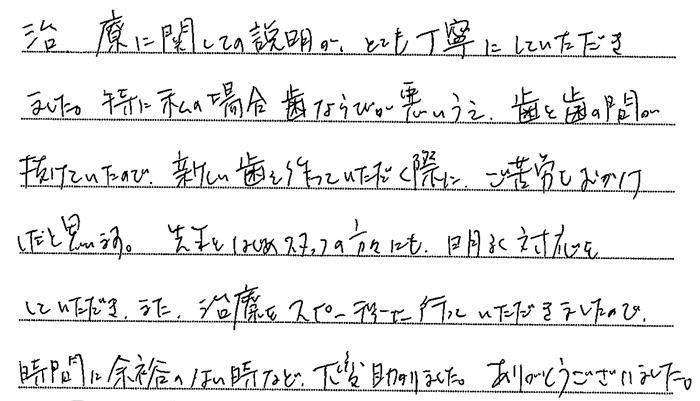 治療に関しての説明が、とても丁寧にしていただき
ました。特に私の場合歯ならびが悪いうえ、歯と歯の間が
抜けていたので、新しい歯を作っていただく際に、ご苦労をおかけ
したと思います。先生をはじめスタッフの方々にも、明るく対応を
していただき、また、治療をスピーディーに行っていただきましたので、
時間に余裕のない時など、大変助かりました。ありがとうございました。